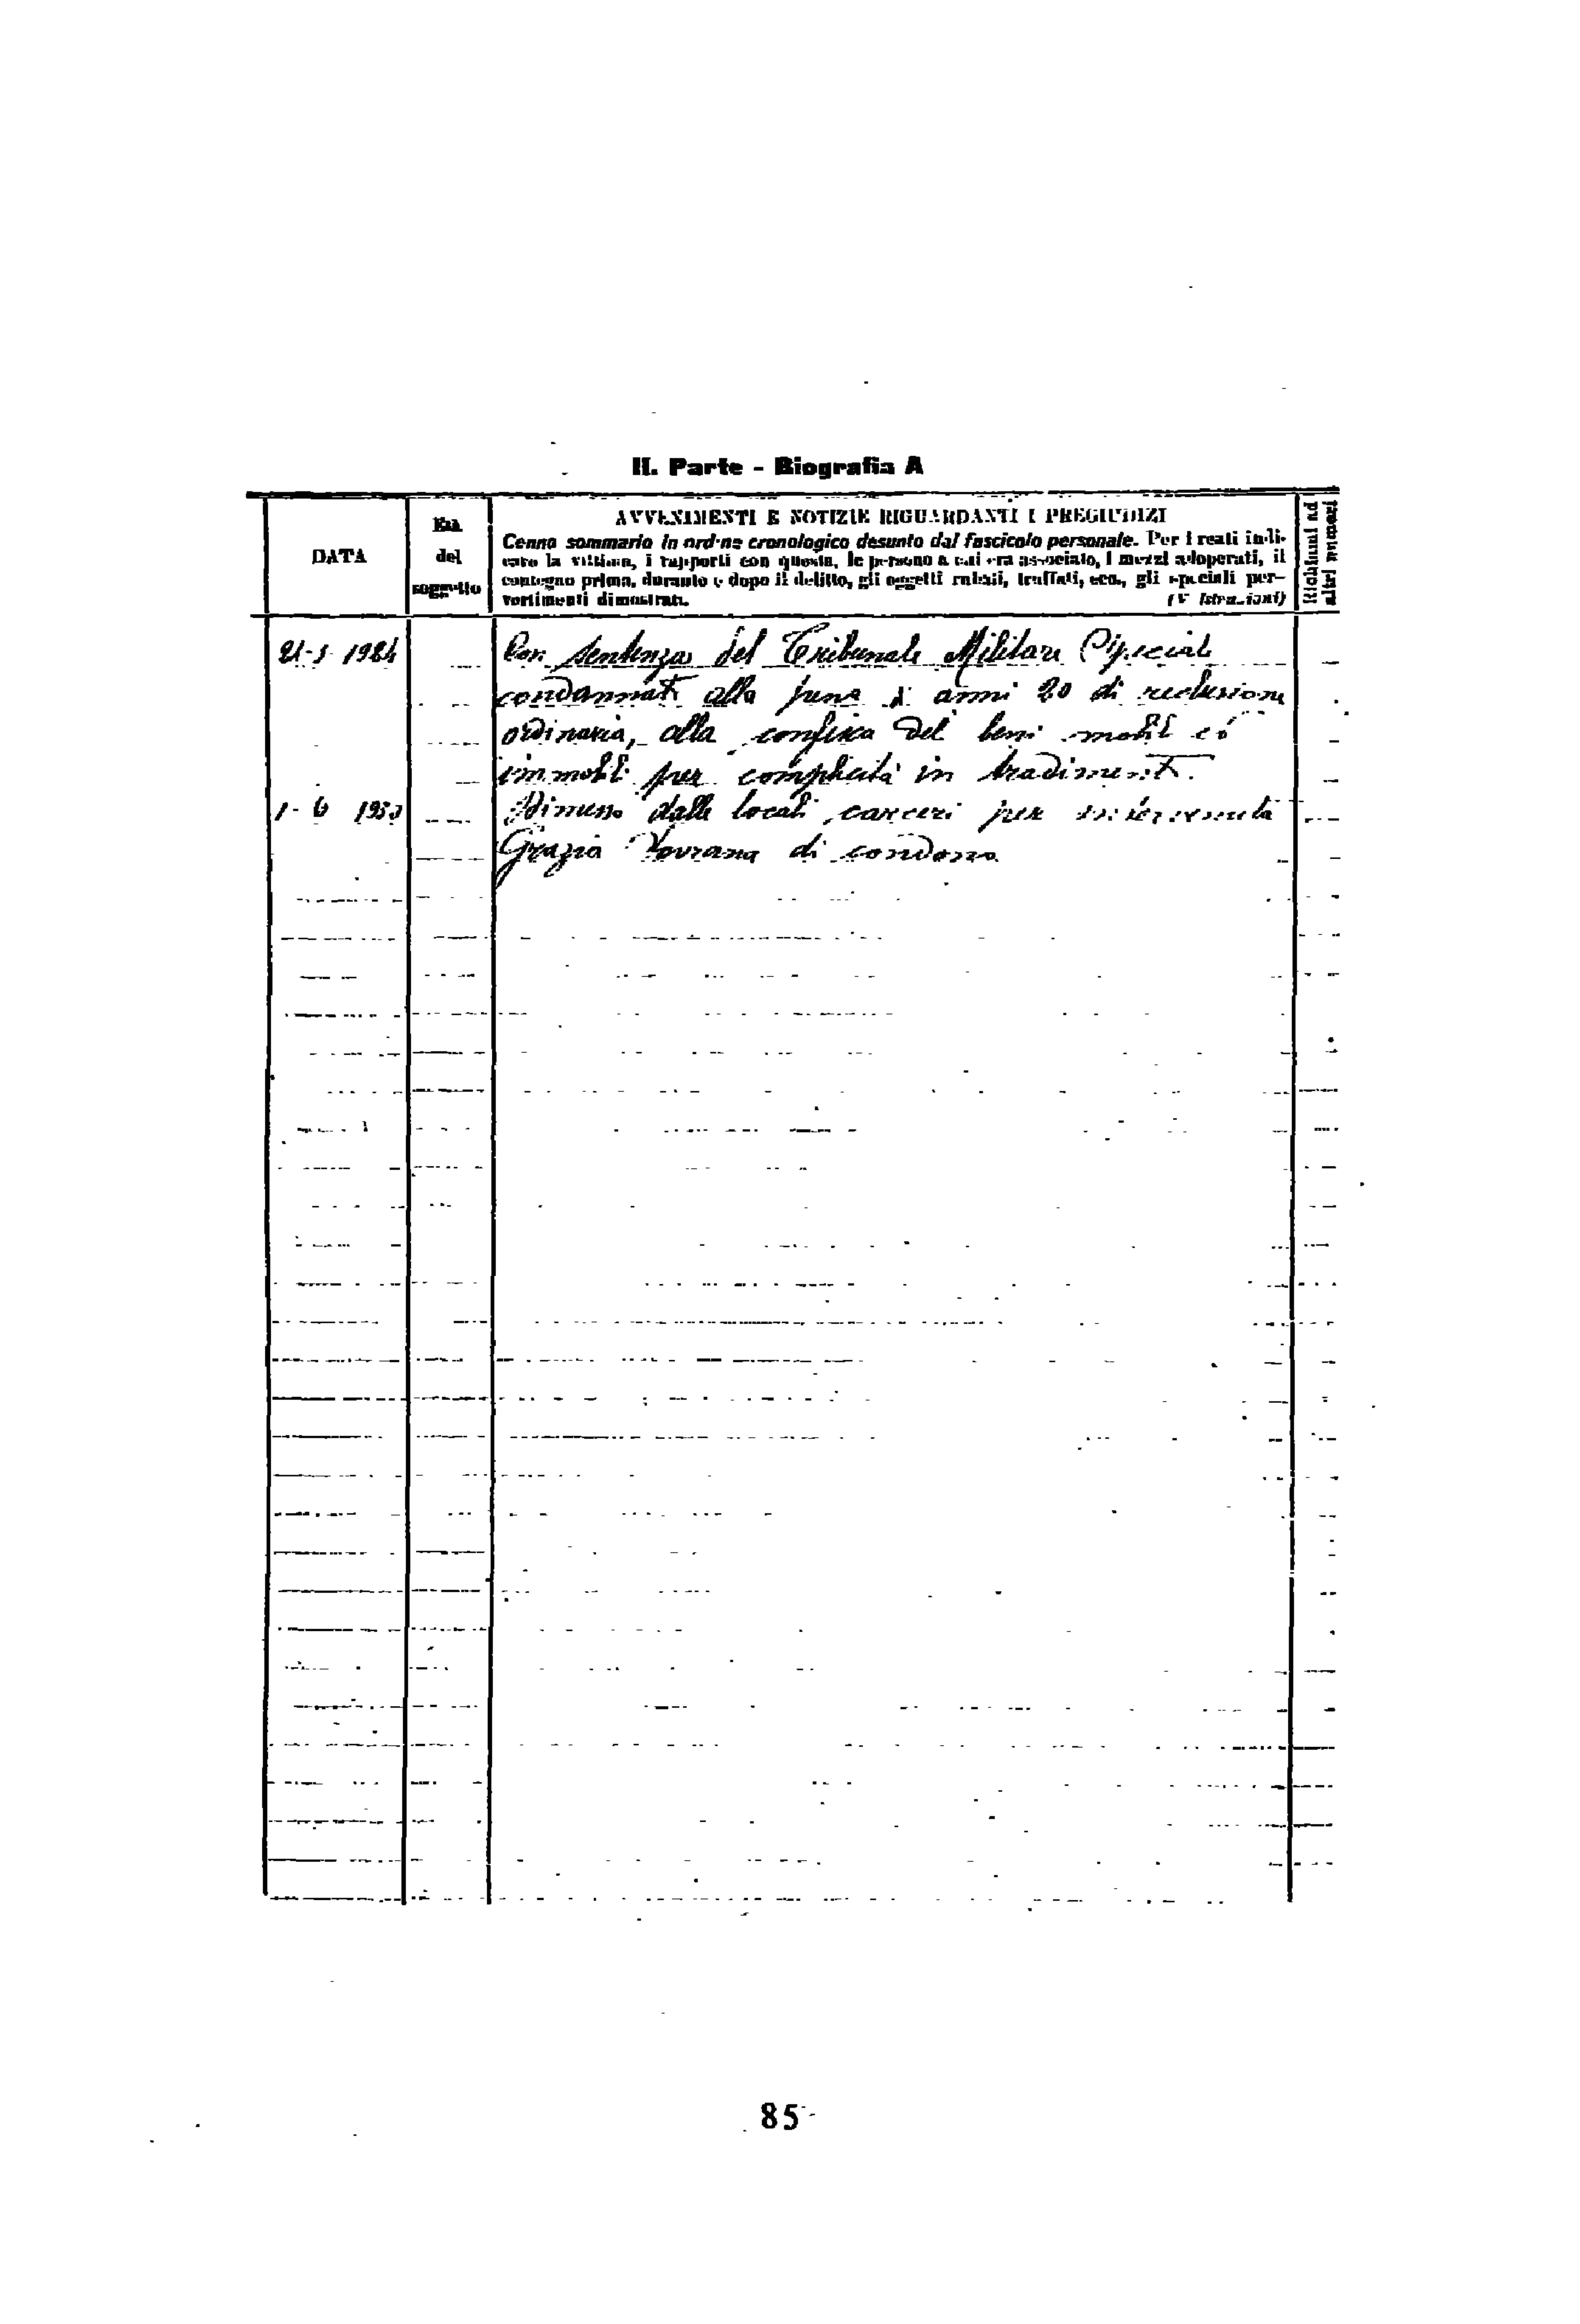 II. Parte - Biografia A
DATA
Età
del
soggetto
AVVENIMENTI E NOTIZIE RIGUARDANTI I PREGIUDIZI
Cenno sommario in ordine cronologico desunto dal fascicolo personale. Per i reati indi-
care la vittima, i rapporti con questa, le persone a cui era associato, i mezzi adoperati, il
contegno prima, durante e dopo il delitto, gli oggetti rubati, truffati, ecc., gli speciali per-
vertimenti dimostrati. (V. Istruzioni)
Richiami ad
altri numeri
Con sentenza del Tribunale Militare Speciale
condannato alla pena di anni 20 di reclusione
ordinaria, alla confisca dei beni mobili ed
immobili per complicità in tradimento.
Dimesso dalle locali carceri per
Grazia Sovrana di condono
85